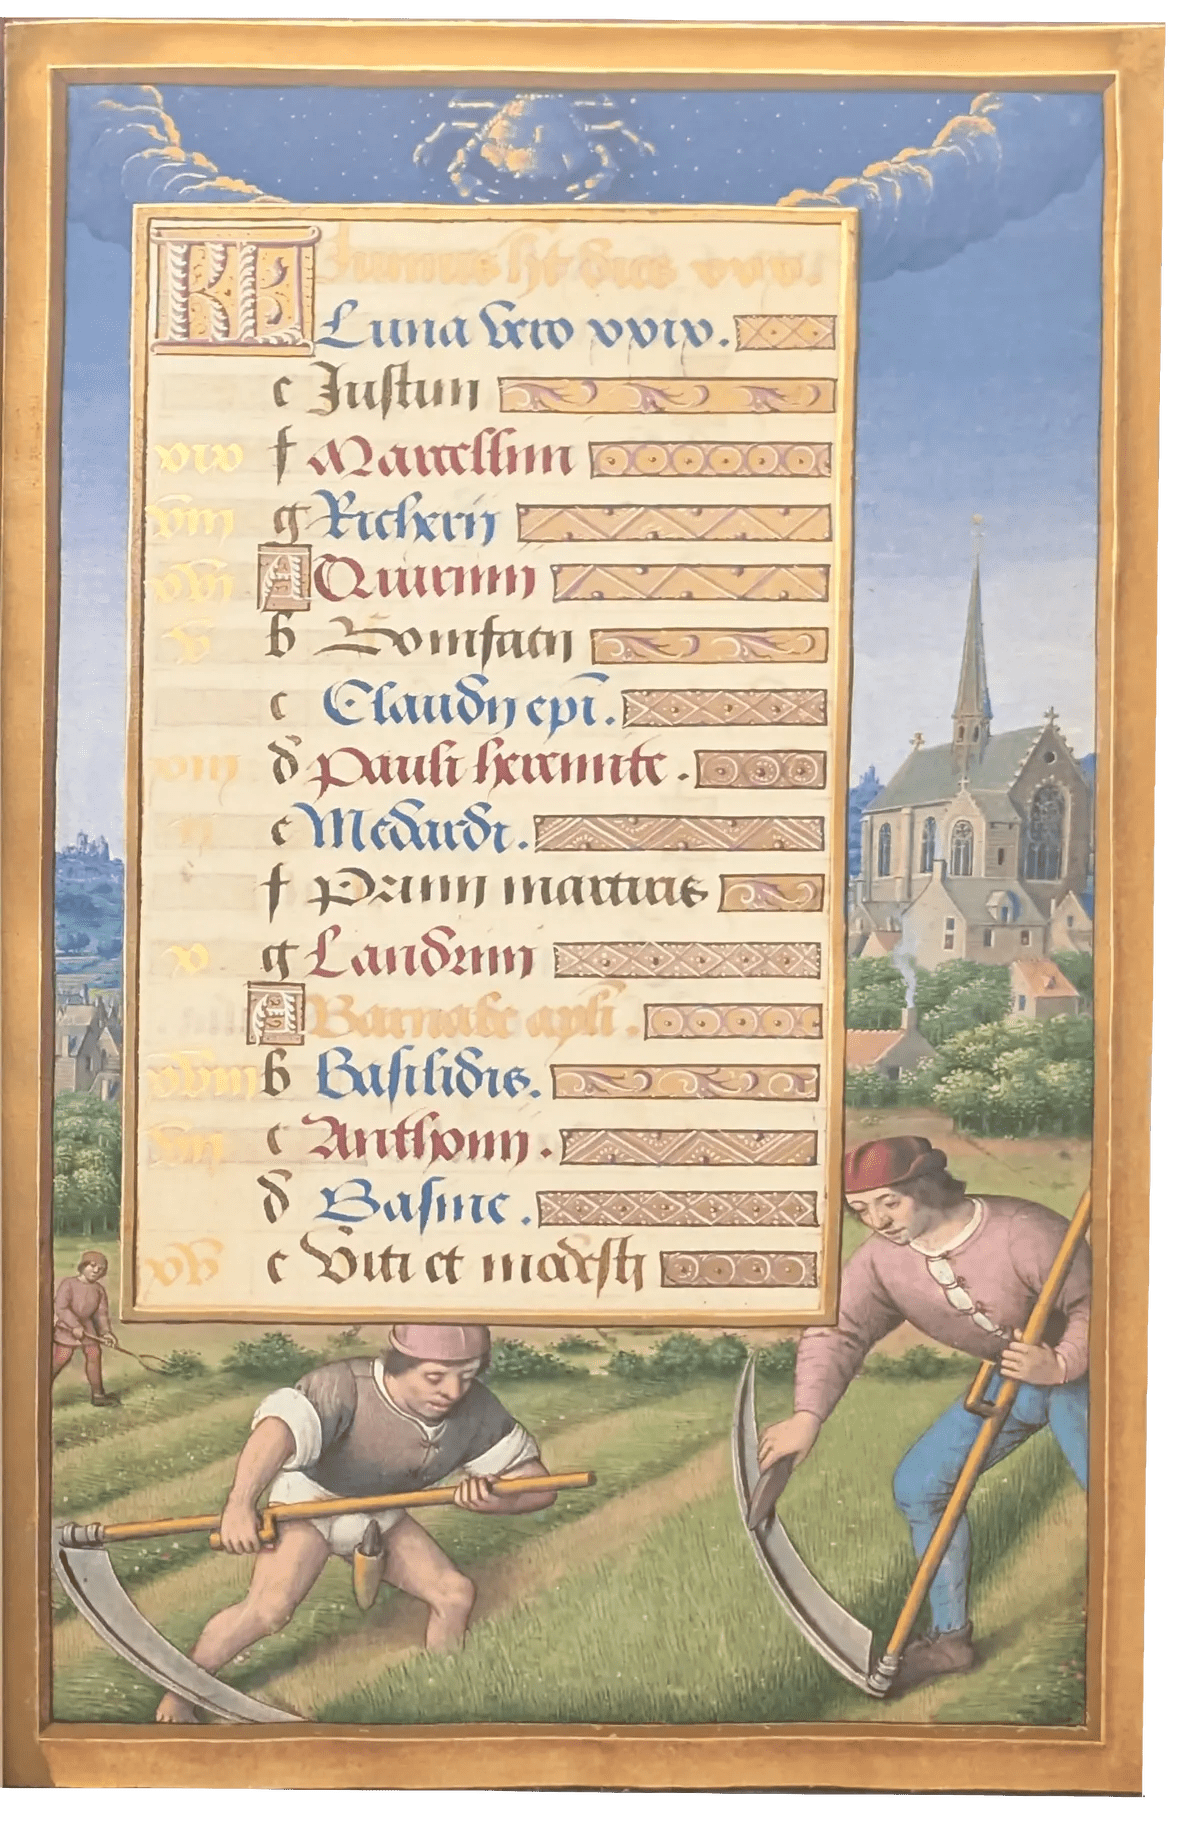 KL Iunius ht dies xxx.
Luna vero xxix.
e Iustini
xix f Marcellini
viii g Richerii
xvi A Quirini
v b Bonifacii
c Claudii epi.
xiii d Pauli heremite.
ii e Medardi.
f Primi martiris
x g Landrini
A Barnabe apli.
xviii b Basilidis.
vii c Anthonii.
d Basine.
xv e Viti et modesti